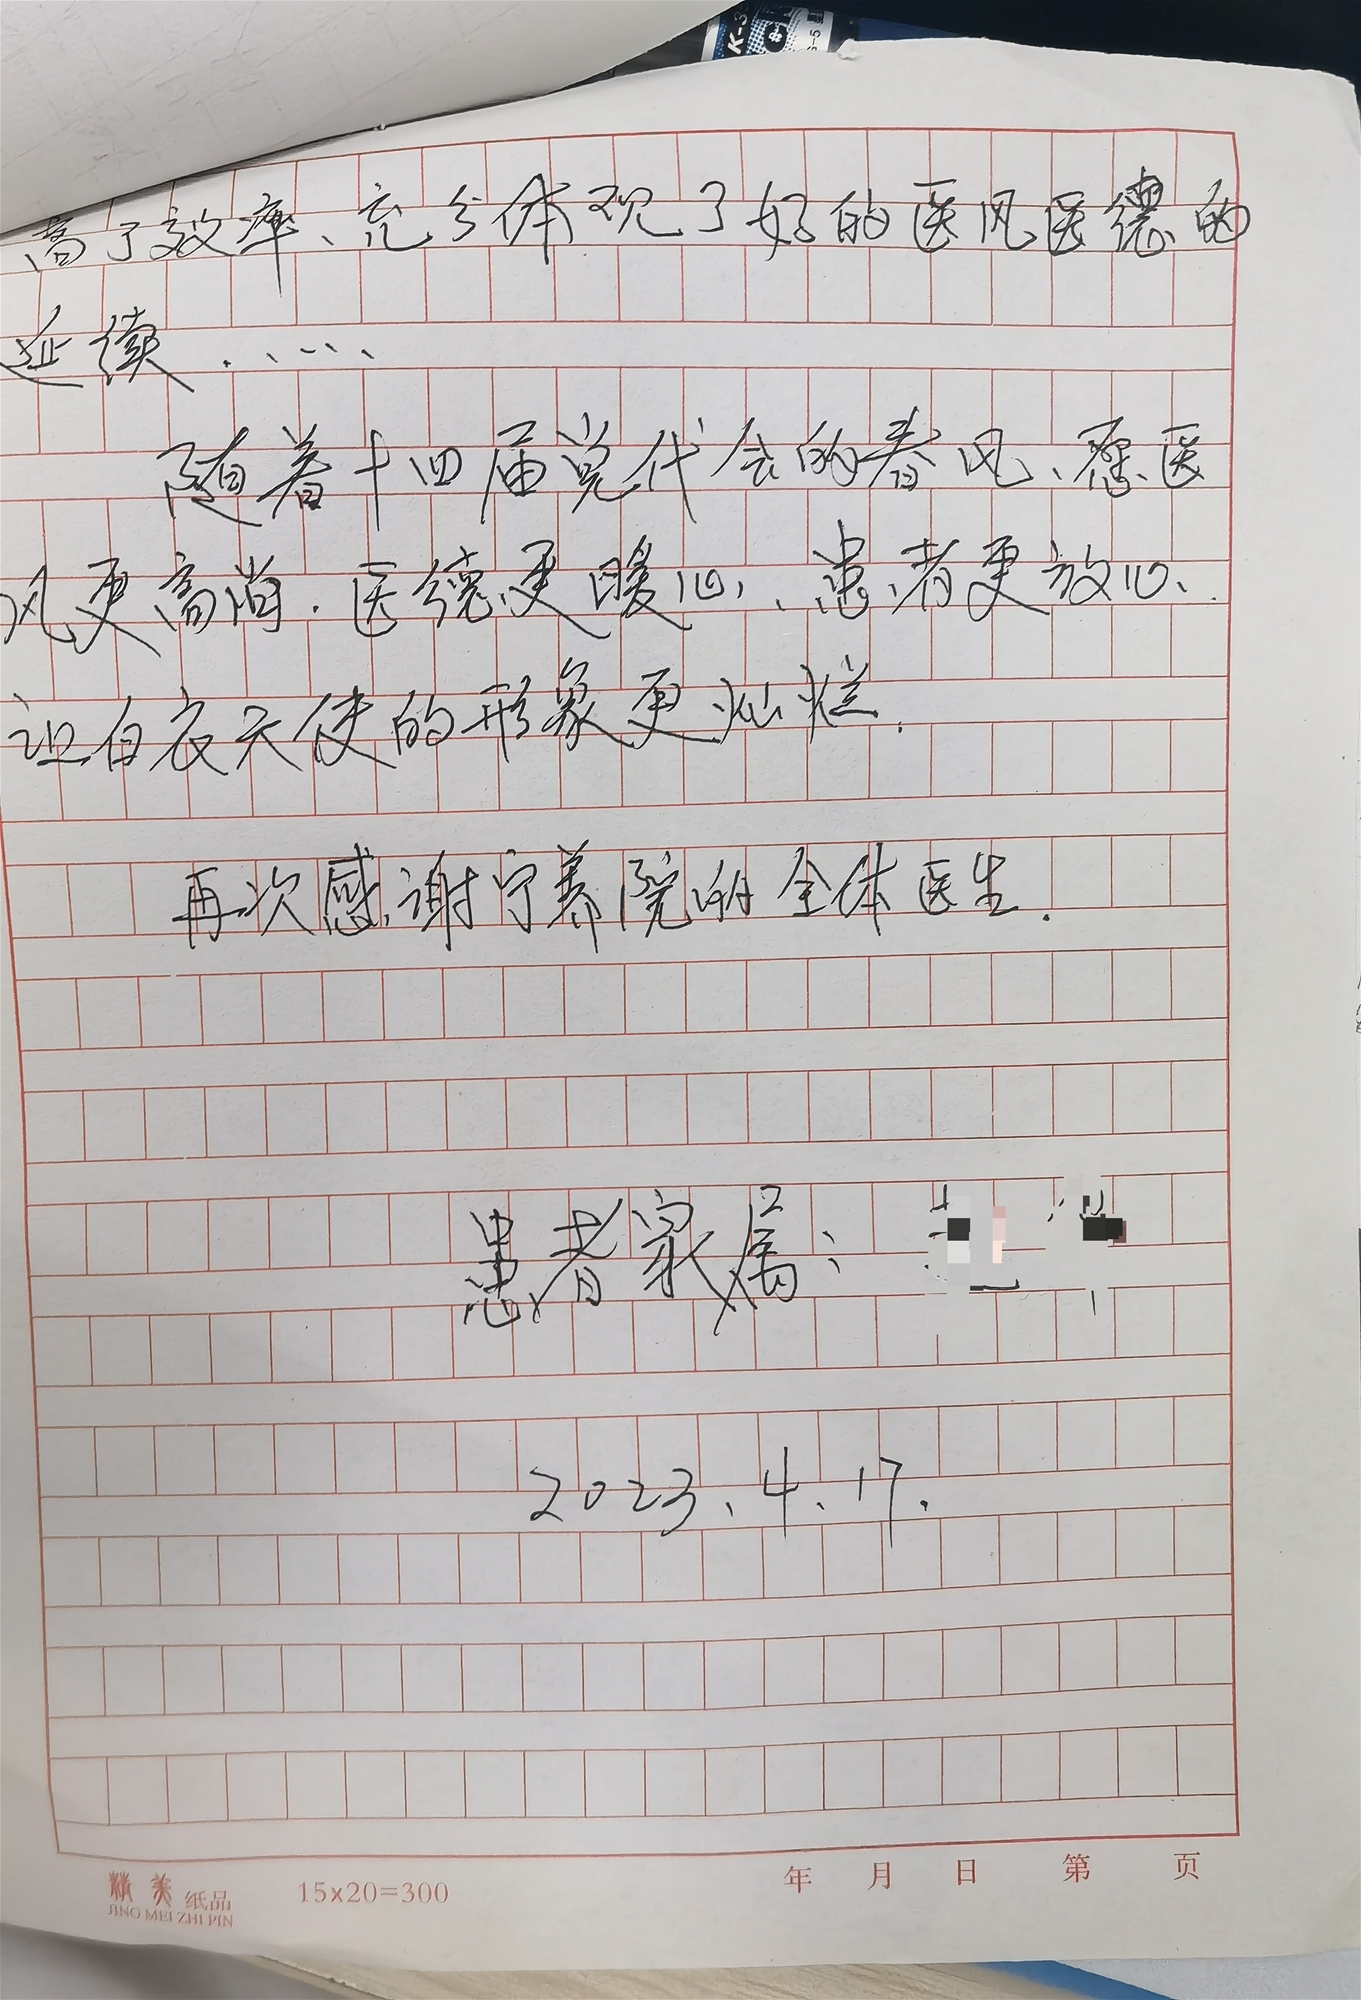 K-3
高了效率、充分体现了好的医风医德的
延续......
随着十四届党代会的春风、愿医
风更高尚.医德更暖心、患者更放心、
让白衣天使的形象更灿烂.
再次感谢宁养院的全体医生.
患者家属:
2023、4、17.
精美纸品 15x20=300 年 月 日 第 页
JING MEI ZHI PIN